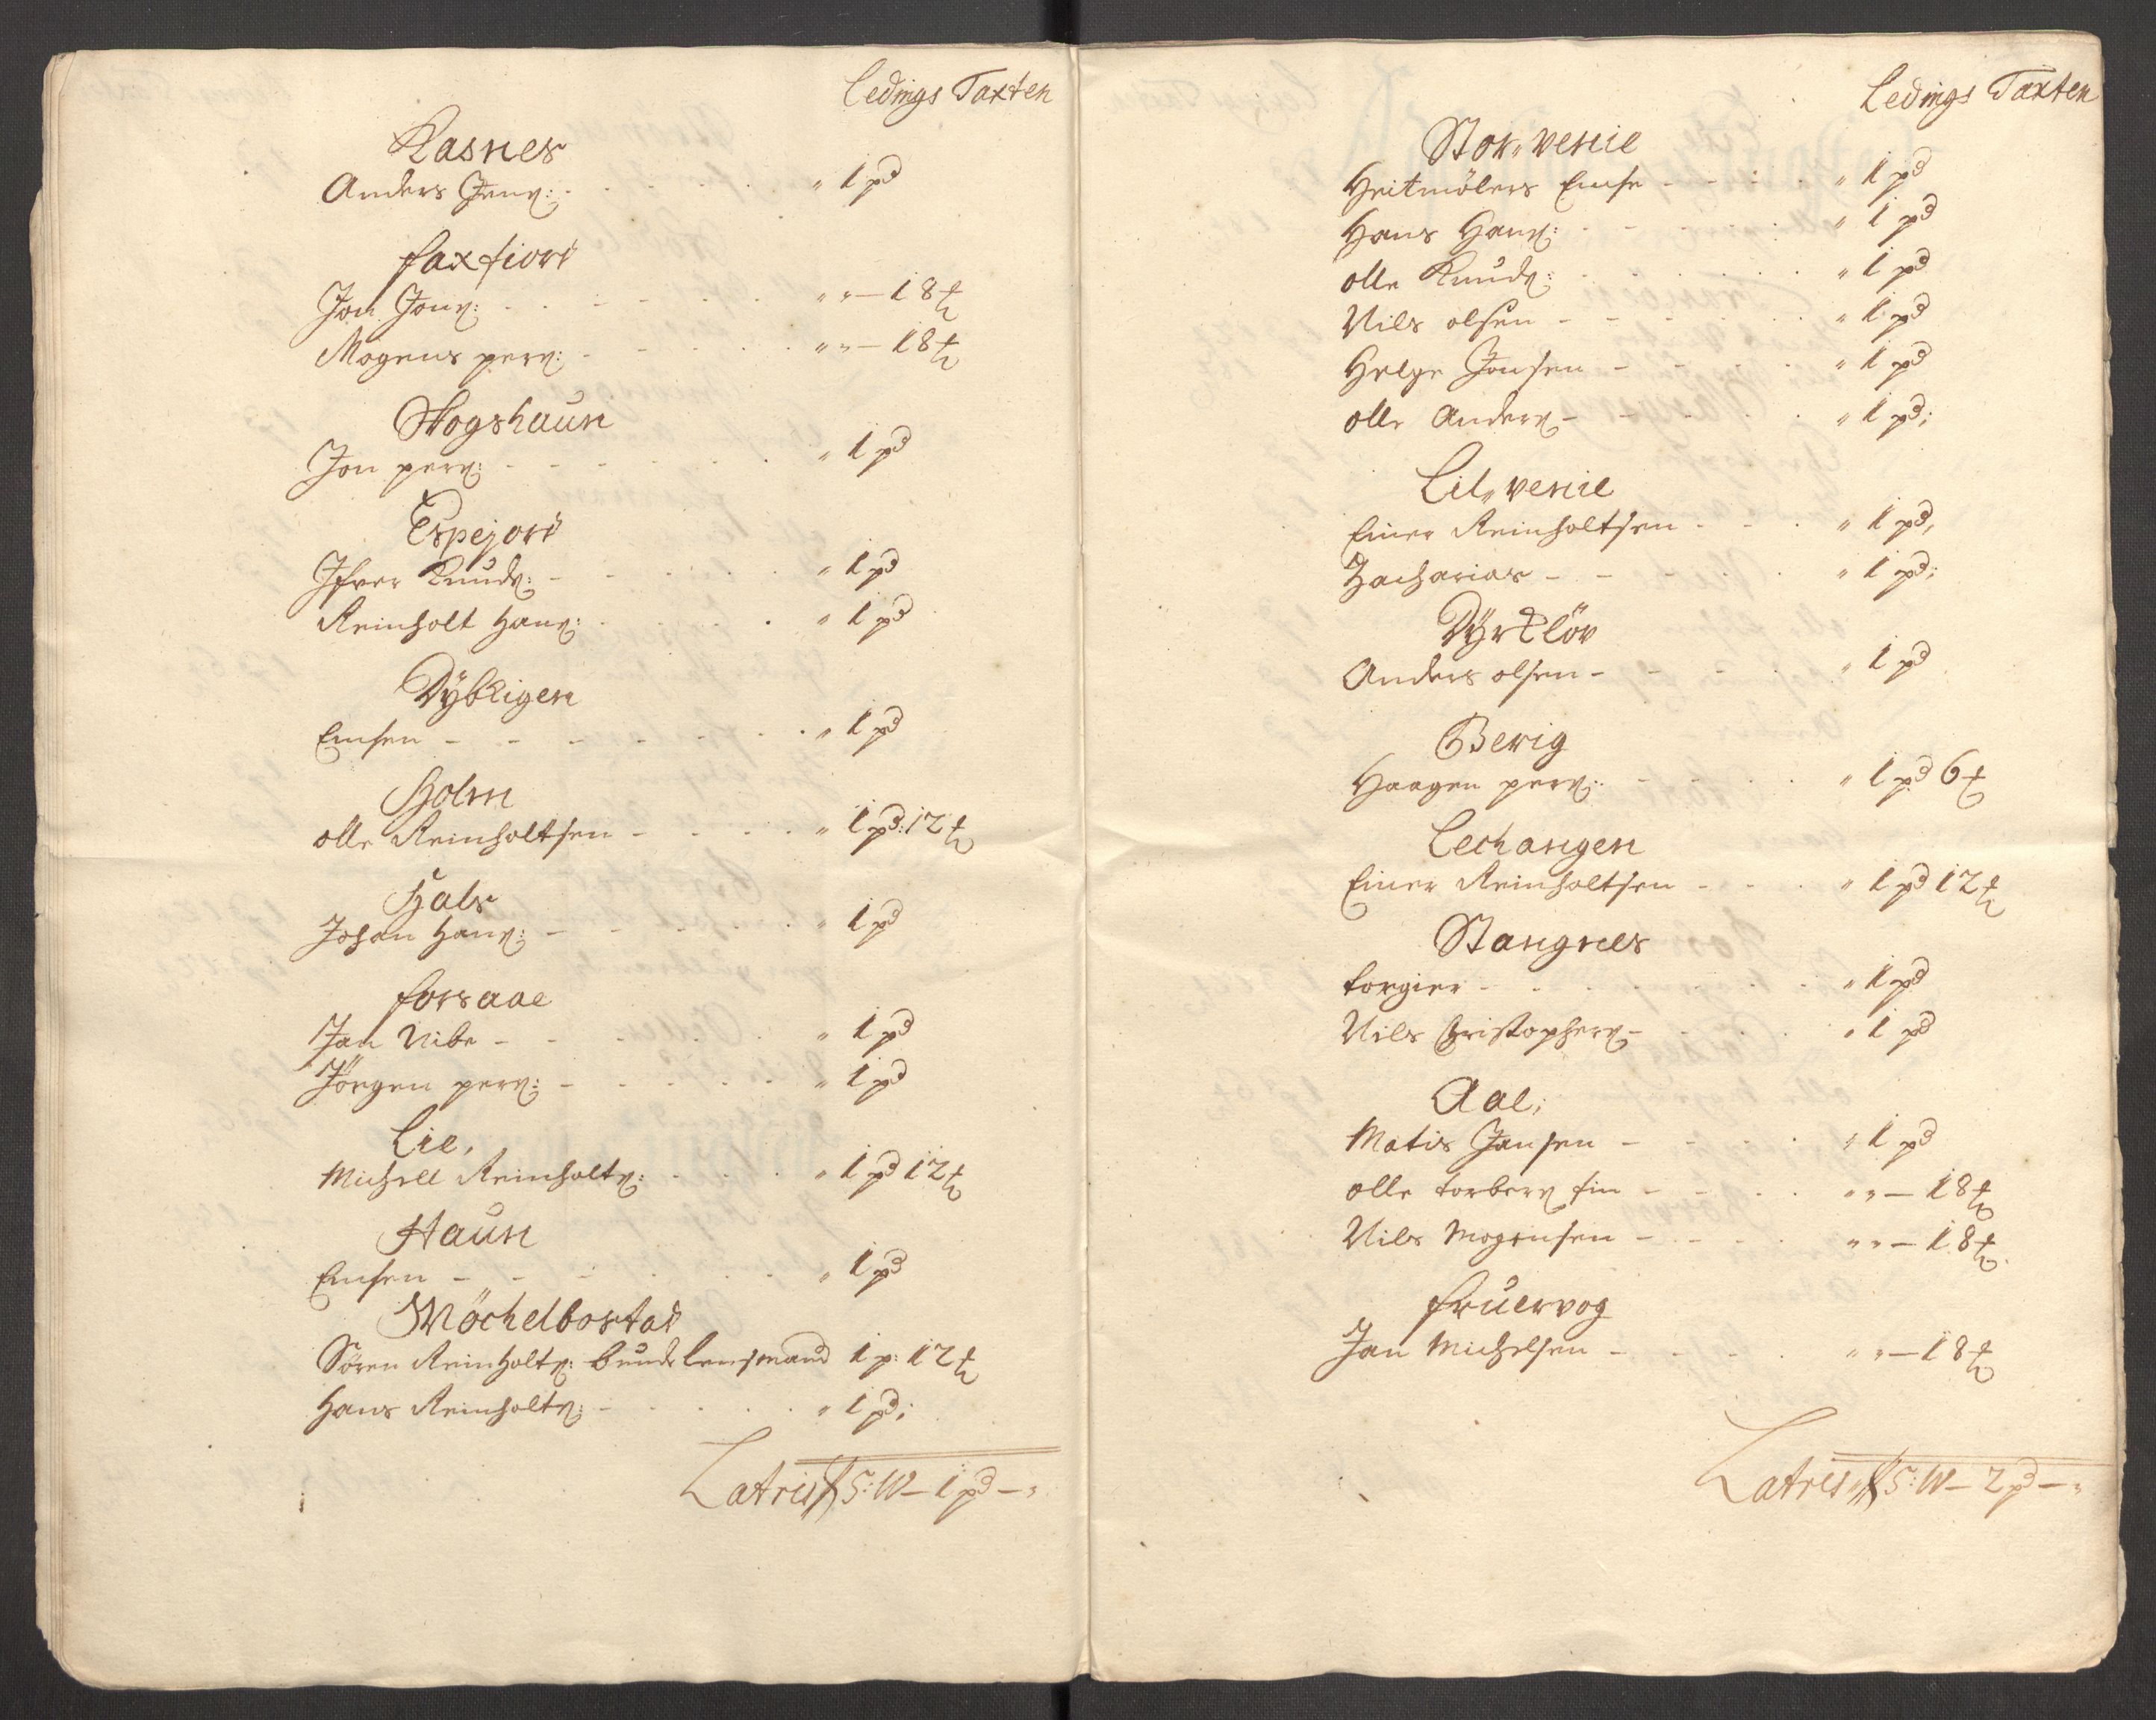 Ledings Taxten
Kasnes
Anders Jenß: " 1 pd
faxfiord
Jon Jonß: " " — 18 ℔
Mogens perß: " " — 18 ℔
Skogshaun
Jon perß: " 1 pd
Espejord
Ifver Knudß: " 1 pd
Reinholt Hanß: " 1 pd
Dybkigen
Enchen " 1 pd
Holm
olle Reinholtsen " 1 pd: 12 ℔
Hals
Johan Hanß: " 1 pd
forsaae
Jan Vibe " 1 pd
Jörgen perß: " 1 pd
Lie,
Michell Reinholtß: " 1 pd 12 ℔
Haun
Enchen " 1 pd
Möchelbostad
Sören Reinholtß: bunde lensmand 1 p: 12 ℔
Hans Reinholtß: " 1 pd;
Latris 5: W — 1 pd — "
Ledings Taxten
Stor„venie
Heitmölers Enche " 1 pd
Hans Hanß: " 1 pd
olle Knudß: " 1 pd
Nils olsen " 1 pd
Helge Jonsen " 1 pd
olle Anderß " 1 pd;
Lil„venie
Einer Reinholtsen " 1 pd,
Zacharias " 1 pd;
Dyrklöv
Anders olsen " 1 pd
Berig
Haagen perß: " 1 pd 6 ℔
Lechangen
Einer Reinholtsen " 1 pd 12 ℔
Stangnes
torgier " 1 pd
Nils Christopherß " 1 pd
Aae;
Matis Jansen " 1 pd
olle torberß fin " " — 18 ℔
Nils Mogensen " " — 18 ℔.
fruervog
Jan Michelsen " " — 18 ℔
Latris 5: W — 2 pd — "